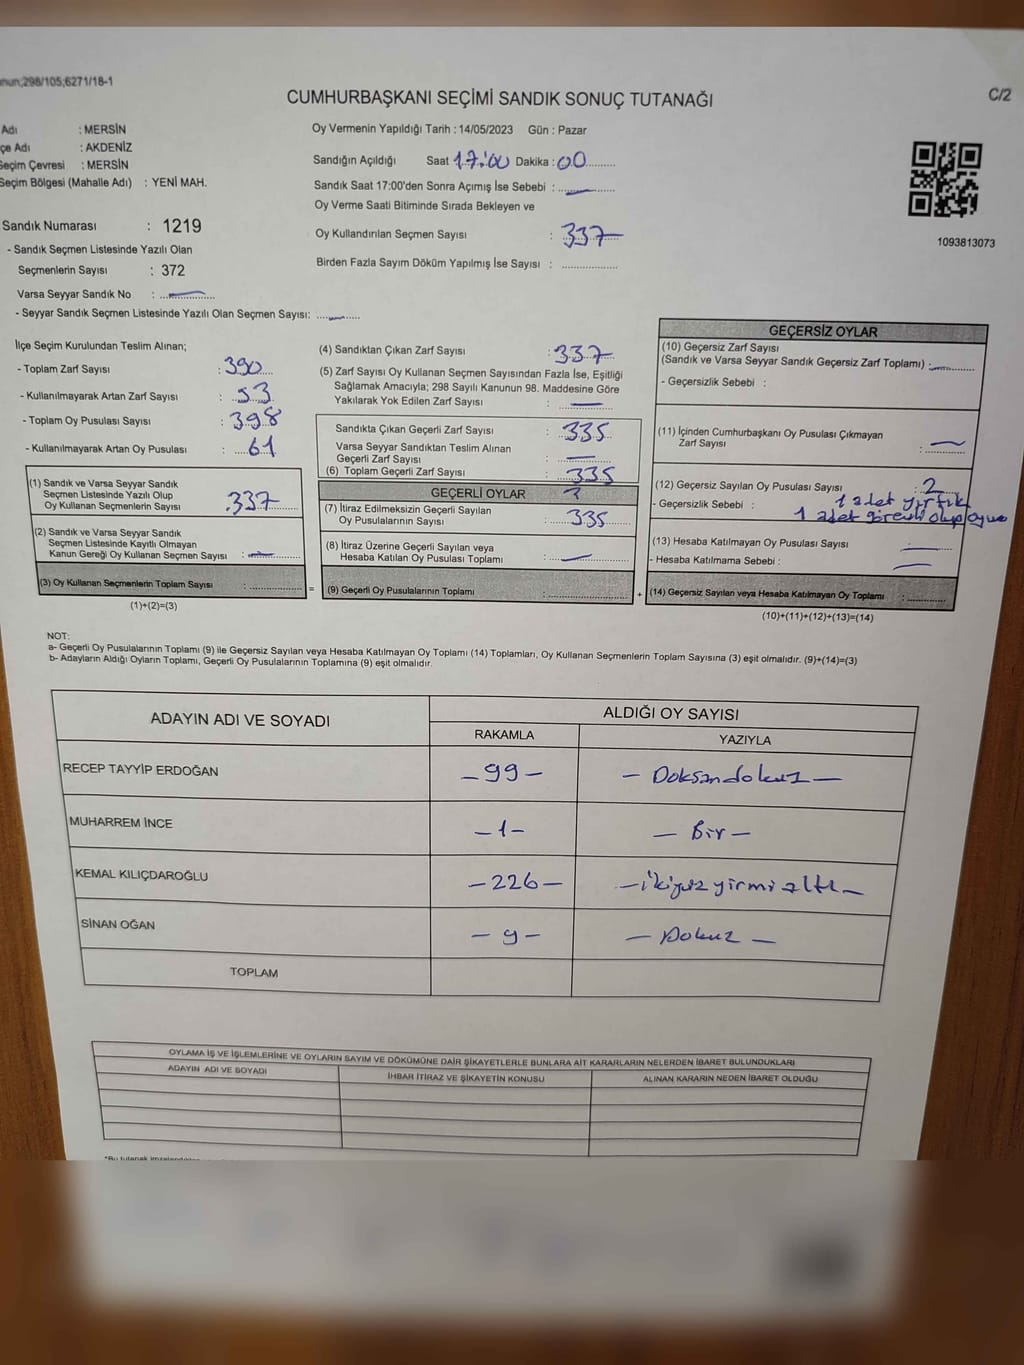 nun;298/105;6271/18-1
CUMHURBAŞKANI SEÇİMİ SANDIK SONUÇ TUTANAĞI
C/2
Adı : MERSİN
çe Adı : AKDENİZ
Seçim Çevresi : MERSİN
Seçim Bölgesi (Mahalle Adı) : YENİ MAH.
Oy Vermenin Yapıldığı Tarih : 14/05/2023 Gün : Pazar
Sandığın Açıldığı Saat 17:00 Dakika : 00
Sandık Saat 17:00'den Sonra Açımış İse Sebebi : —
Oy Verme Saati Bitiminde Sırada Bekleyen ve
Oy Kullandırılan Seçmen Sayısı : 337
Birden Fazla Sayım Döküm Yapılmış İse Sayısı :
1093813073
Sandık Numarası : 1219
- Sandık Seçmen Listesinde Yazılı Olan
Seçmenlerin Sayısı : 372
Varsa Seyyar Sandık No : —
- Seyyar Sandık Seçmen Listesinde Yazılı Olan Seçmen Sayısı: —
İlçe Seçim Kurulundan Teslim Alınan;
- Toplam Zarf Sayısı : 390
- Kullanılmayarak Artan Zarf Sayısı : 53
- Toplam Oy Pusulası Sayısı : 398
- Kullanılmayarak Artan Oy Pusulası : 61
(1) Sandık ve Varsa Seyyar Sandık
Seçmen Listesinde Yazılı Olup
Oy Kullanan Seçmenlerin Sayısı : 337
(2) Sandık ve Varsa Seyyar Sandık
Seçmen Listesinde Kayıtlı Olmayan
Kanun Gereği Oy Kullanan Seçmen Sayısı : —
(3) Oy Kullanan Seçmenlerin Toplam Sayısı :
(1)+(2)=(3)
(4) Sandıktan Çıkan Zarf Sayısı : 337
(5) Zarf Sayısı Oy Kullanan Seçmen Sayısından Fazla İse, Eşitliği
Sağlamak Amacıyla; 298 Sayılı Kanunun 98. Maddesine Göre
Yakılarak Yok Edilen Zarf Sayısı : —
Sandıkta Çıkan Geçerli Zarf Sayısı : 335
Varsa Seyyar Sandıktan Teslim Alınan
Geçerli Zarf Sayısı : —
(6) Toplam Geçerli Zarf Sayısı : 335
GEÇERLİ OYLAR
(7) İtiraz Edilmeksizin Geçerli Sayılan
Oy Pusulalarının Sayısı : 335
(8) İtiraz Üzerine Geçerli Sayılan veya
Hesaba Katılan Oy Pusulası Toplamı : —
= (9) Geçerli Oy Pusulalarının Toplamı :
+
GEÇERSİZ OYLAR
(10) Geçersiz Zarf Sayısı
(Sandık ve Varsa Seyyar Sandık Geçersiz Zarf Toplamı) : —
- Geçersizlik Sebebi :
(11) İçinden Cumhurbaşkanı Oy Pusulası Çıkmayan
Zarf Sayısı : —
(12) Geçersiz Sayılan Oy Pusulası Sayısı : 2
- Geçersizlik Sebebi : 1 adet yırtık
1 adet görevli olup
(13) Hesaba Katılmayan Oy Pusulası Sayısı : —
- Hesaba Katılmama Sebebi : —
(14) Geçersiz Sayılan veya Hesaba Katılmayan Oy Toplamı :
(10)+(11)+(12)+(13)=(14)
NOT:
a- Geçerli Oy Pusulalarının Toplamı (9) ile Geçersiz Sayılan veya Hesaba Katılmayan Oy Toplamı (14) Toplamları, Oy Kullanan Seçmenlerin Toplam Sayısına (3) eşit olmalıdır. (9)+(14)=(3)
b- Adayların Aldığı Oyların Toplamı, Geçerli Oy Pusulalarının Toplamına (9) eşit olmalıdır.
ADAYIN ADI VE SOYADI
ALDIĞI OY SAYISI
RAKAMLA YAZIYLA
RECEP TAYYİP ERDOĞAN – 99 – – Doksandokuz –
MUHARREM İNCE – 1 – – Bir –
KEMAL KILIÇDAROĞLU – 226 – – ikiyüzyirmialtı –
SİNAN OĞAN – 9 – – Dokuz –
TOPLAM
OYLAMA İŞ VE İŞLEMLERİNE VE OYLARIN SAYIM VE DÖKÜMÜNE DAİR ŞİKAYETLERLE BUNLARA AİT KARARLARIN NELERDEN İBARET BULUNDUKLARI
ADAYIN ADI VE SOYADI İHBAR İTİRAZ VE ŞİKAYETİN KONUSU ALINAN KARARIN NEDEN İBARET OLDUĞU